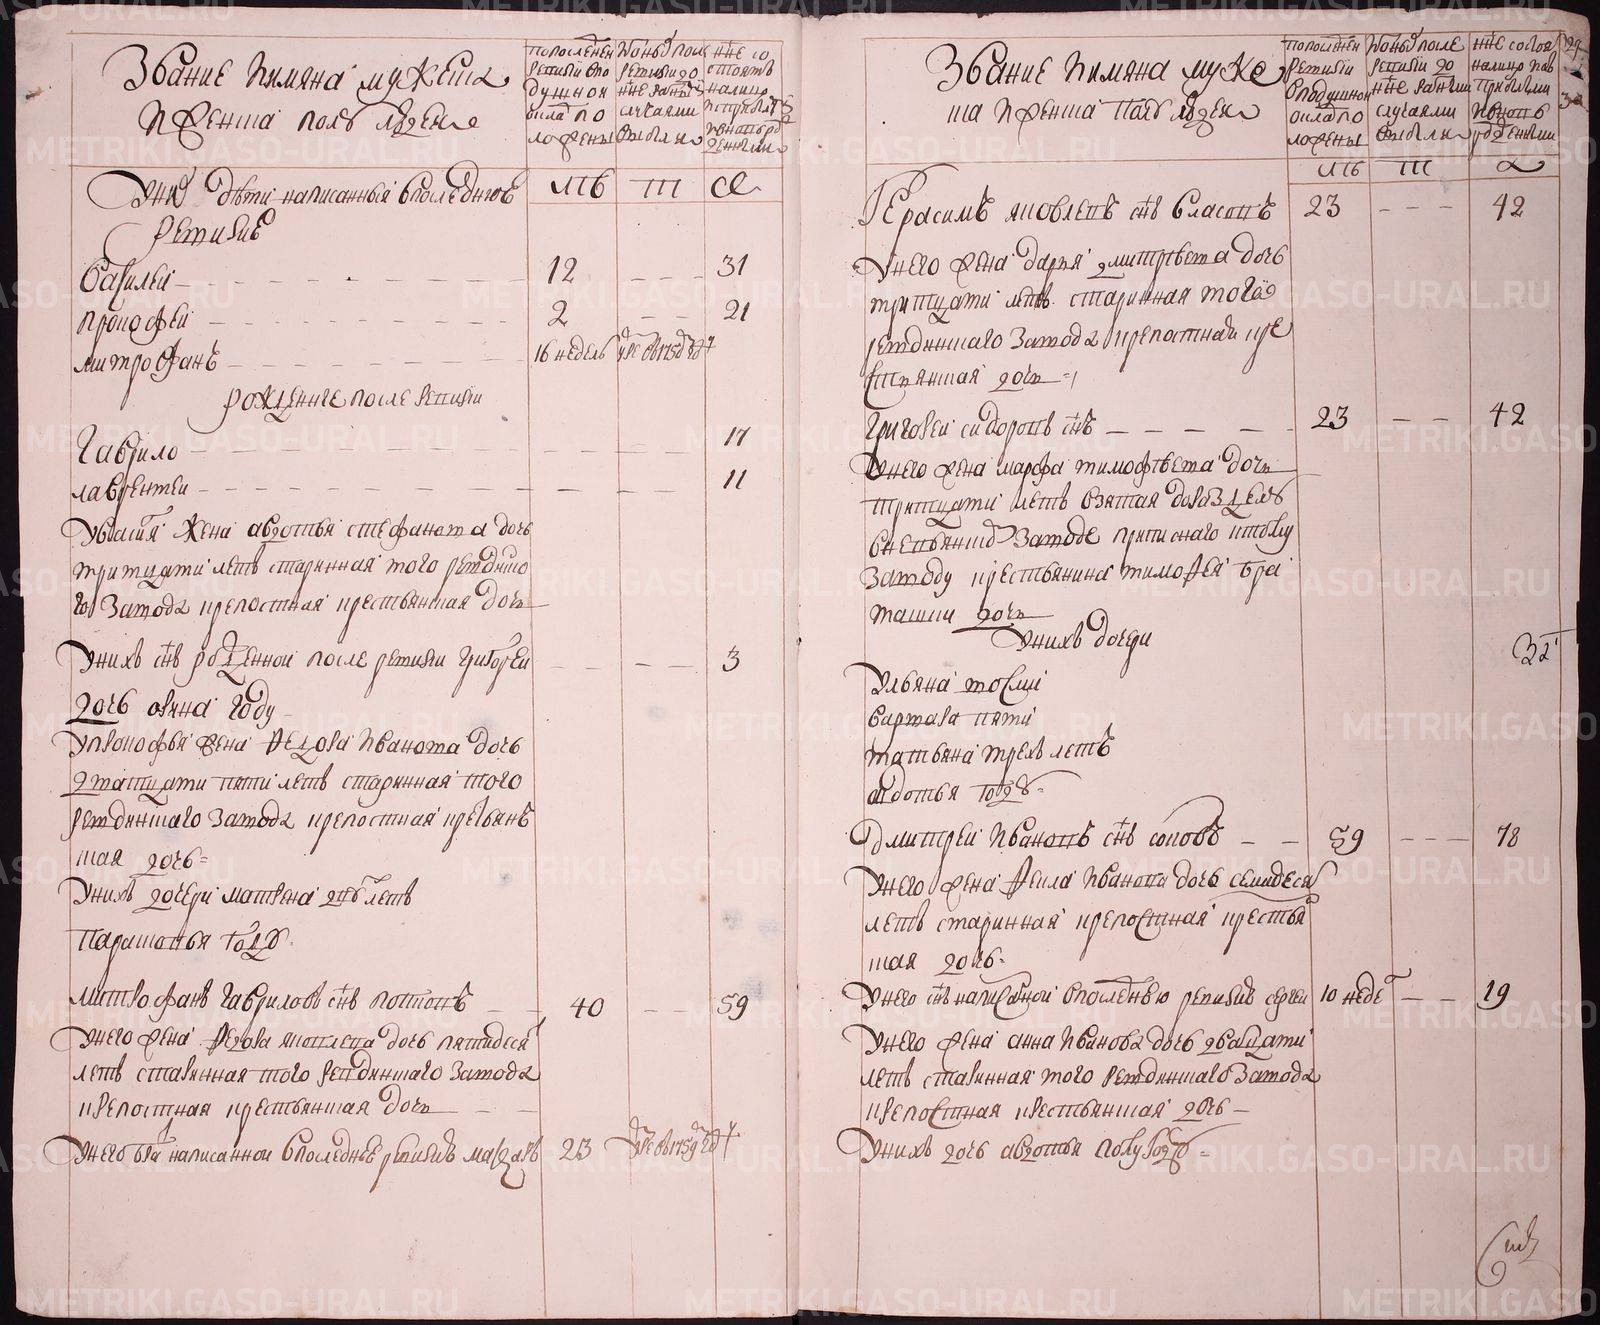 Звание имяна мужеска
и женска полъ людеи
по последнеи ревизии в подушнои оклад положены
ис оных после ревизии до ныне разными случаями выбыли
ныне состоятъ налицо с прибылы и вновь рожденными
У них дети написанныя в последнюю
ревизие
Василеи 12 31
Прокофеи 2 21
Митрофанъ 16 недель умре в 1750 год
рожденные после ревизии
Гаврило 17
Лаврентеи 11
У Василя жена Авдотья Стефанова дочь
тритцати летъ старинная того Ревдинско
го завода крепостная крестьянская дочь
У них сынъ рожденнои после ревизии Григореи 3
дочь Овяна году
У Прокофья жена Федора Иванова дочь
дватцати пяти летъ старинная того
Ревдинскаго завода крепостная крестьянъ
ская дочь
У них дочери Матрена дву летъ
Парасковья году
Митрофанъ Гавриловъ снъ 40 59
У него жена Федора Яковлева дочь пятидесят
летъ старинная того Ревдинскаго завода
крепостная крестьянская дочь
У него брат написаннои в последнее ревизие Макаръ 23 умре в 1759 год
Звание имяна муже
ска и женска полъ людеи
по последнеи ревизии в подушнои оклад положены
ис оных после ревизии до ныне разными случаями выбыли
ныне состоя налицо с прибылыми и вновь рожденными
Герасимъ Яковлевъ снъ Власовъ 23 42
У него жена Дарья Дмитревена дочь
тритцати летъ старинная того
Ревдинскаго завода крепостная кре
стьянская дочь
Григореи Сидоровъ снъ 23 42
У него жена Марфа Тимофеева дочь
тритцати летъ взятая
заводе приписного к тому
заводу крестьянина Тимофея
дочь
У них дочери
Ульяна восми
Варвара пяти
Татьяна трех летъ
Авдотья году
Дмитреи Ивановъ снъ Поповъ 59 78
У него жена Фекла Иванова дочь семидеся
летъ старинная крепостная крестья
ская дочь
У него снъ написаннои в последнею ревизие Сергеи 10 неде 19
У него жена Анна Иванова дочь двацати
летъ старинная того Ревдинскаго завода
крепостная крестьянская дочь
У них дочь Авдотья полугоду
METRIKI.GASO-URAL.RU